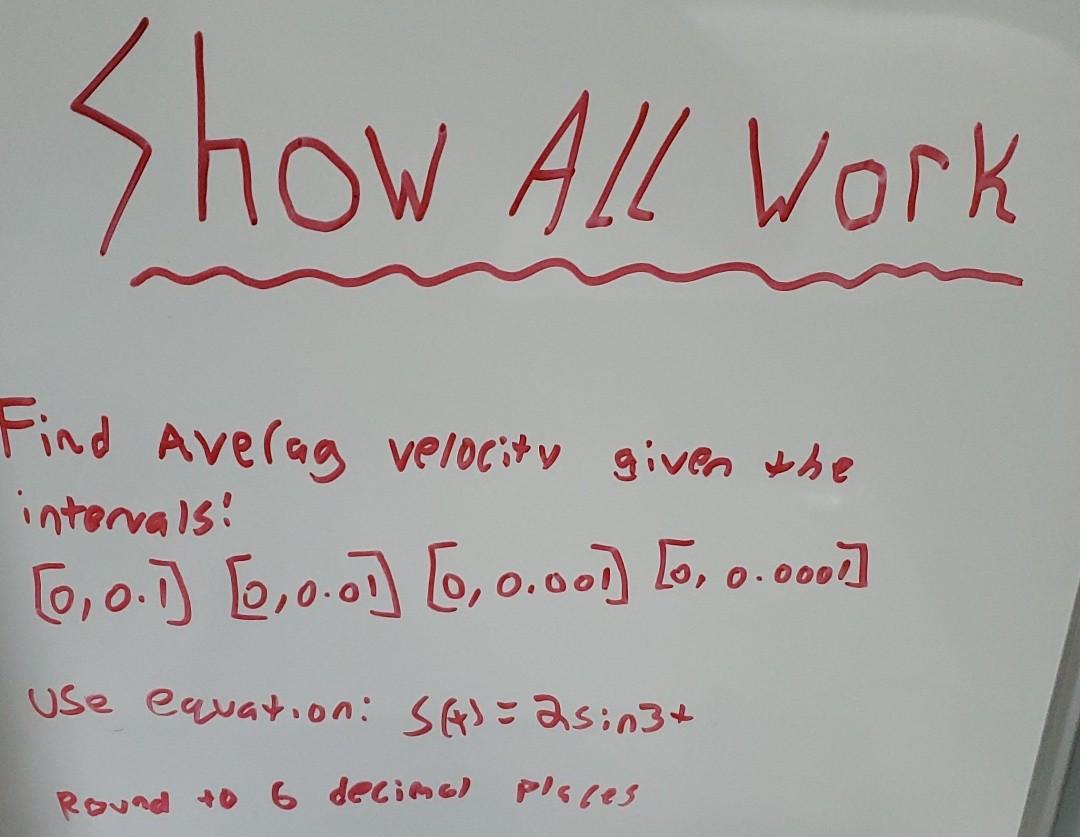 Show All Work
Find Averag velocity given the
intervals:
[0,0.1] [0,0.01] [0,0.001] [0,0.0001]
Use equation: S(t)=2sin3t
Round to 6 decimal places